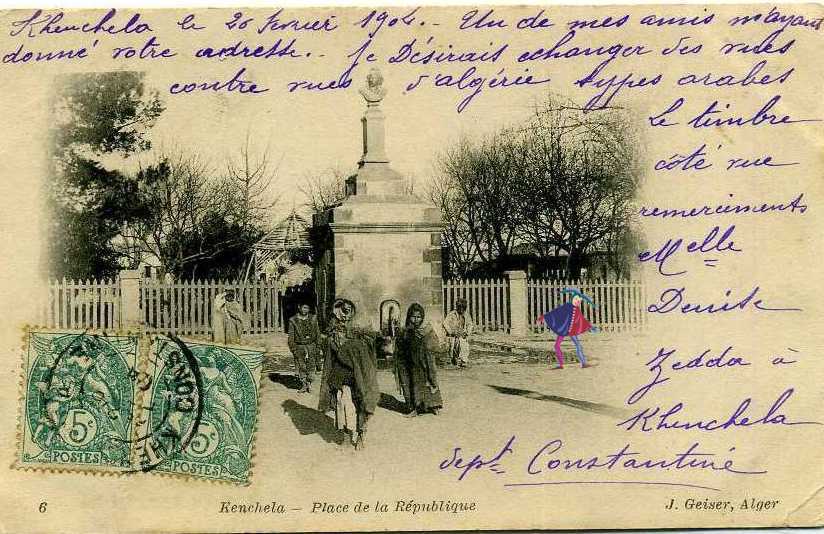 Khenchela le 20 fevrier 1904.- Un de mes amis m'ayant
donné votre adresse.- Je Désirais echanger des vues
contre vues d'algérie types arabes
Le timbre
côté vue
remerciments
Melle
Denise
Zedda à
Khenchela
dept Constantine
5c
POSTES
5c
POSTES
CONST
KHE
6 Kenchela — Place de la République J. Geiser, Alger